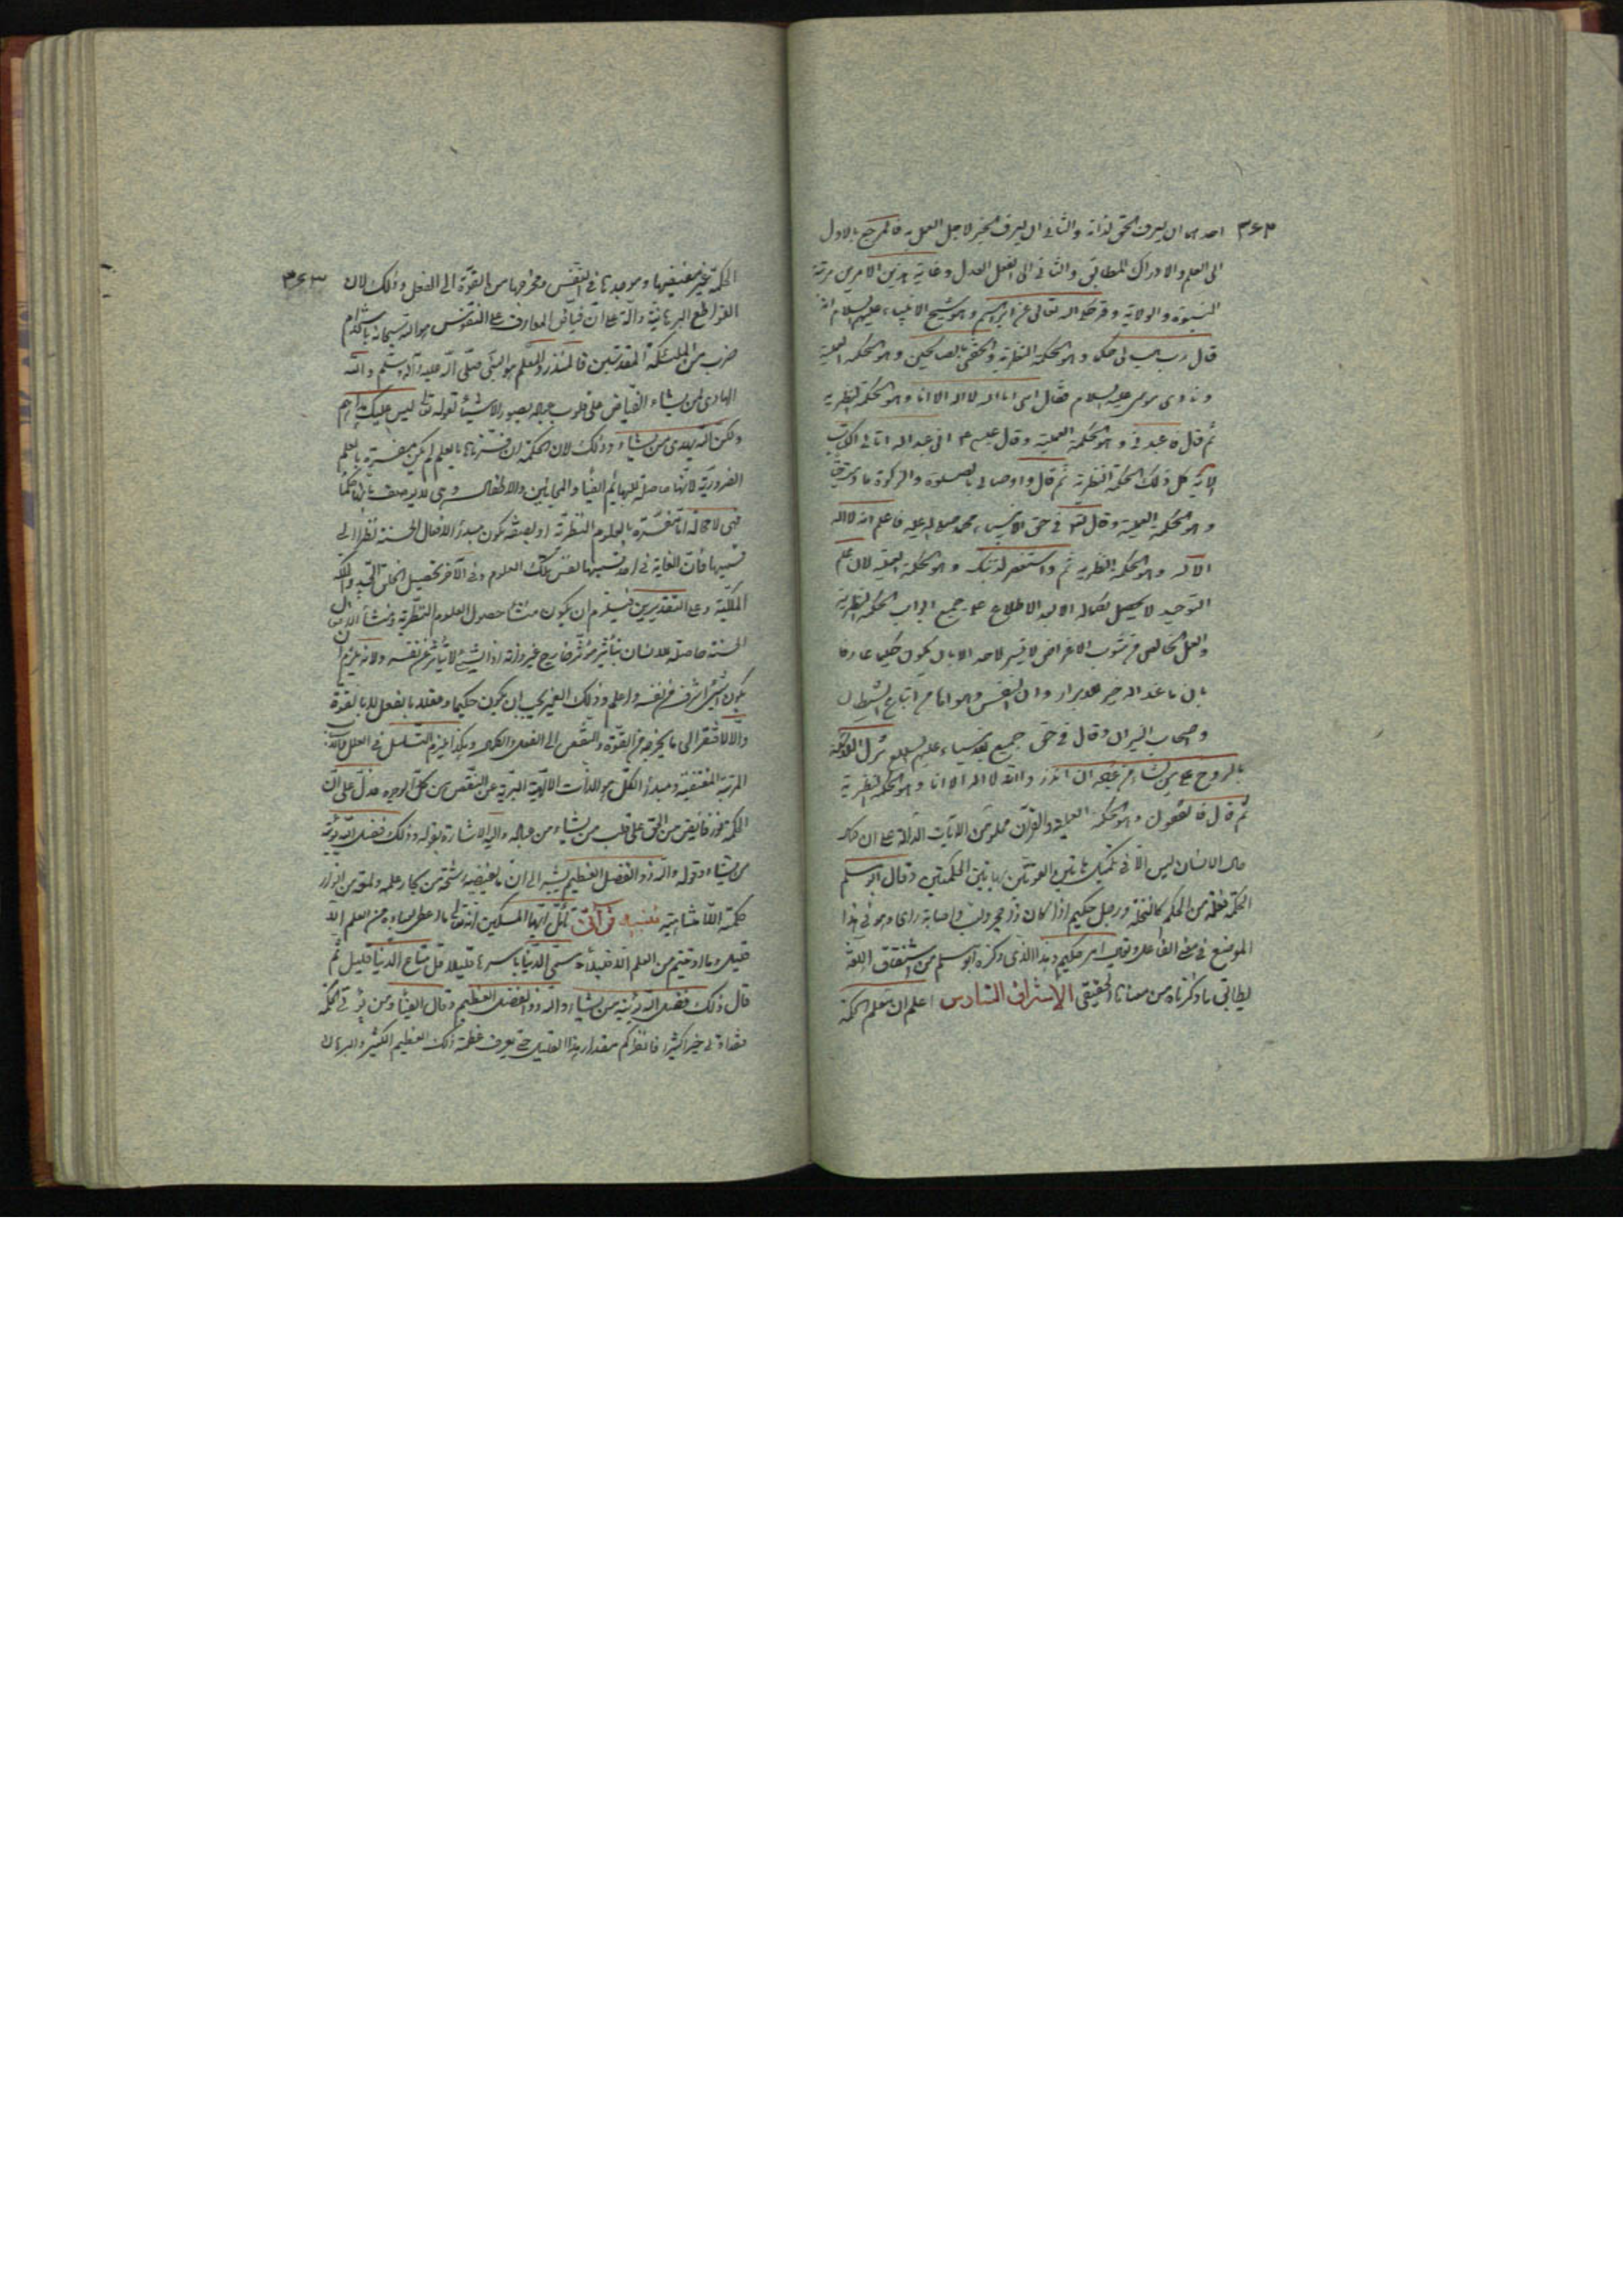 ٣٤٢ احدهما ان يعرف الحق لذاته والثانى ان يعرف الخير لاجل العمل به فالمرجع بالاول
الى العلم والادراك المطابق والثانى الى الفعل العدل وغاية هذين الامرين مرتبة
النبوة والولاية وقد حكى الله تعالى عن ابراهيم وهو شيخ الانبياء عليهم السلام انه
قال رب هب لى حكما وهو الحكمة النظرية والحقنى بالصالحين وهو الحكمة العملية
ونادى موسى عليه السلام فقال انى انا الله لا اله الا انا وهو الحكمة النظرية
ثم قال فاعبدنى وهو الحكمة العملية وقال عيسى ع انى عبد الله اتانى الكتاب
الاية كل ذلك الحكمة النظرية ثم قال واوصانى بالصلوة والزكوة ما دمت حيا
وهو الحكمة العملية وقال فى حق محمد صلى الله عليه فاعلم انه لا اله
الا الله وهو الحكمة النظرية ثم واستغفر لذنبك وهو الحكمة العملية لان علم
التوحيد لا يحصل بكماله الا بعد الاطلاع على جميع ابواب الحكمة النظرية
والعمل الخالص من شوب الاغراض لا يتيسر لاحد الا بان يكون حكيما عارفا
بان ما عند الله خير للابرار وان النفس وهواها من اتباع الشيطان
واصحاب النيران وقال فى حق جميع الانبياء عليهم السلام ينزل الملائكة
بالروح على من يشاء من عباده ان انذروا انه لا اله الا انا وهو الحكمة النظرية
ثم قال فاتقون وهو الحكمة العملية والقرآن مملو من الايات الدالة على ان كمال
حال الانسان ليس الا فى تكميل هاتين القوتين بهاتين الحكمتين وقال ابو مسلم
الحكمة فعلة من الحكم كالنحلة ورجل حكيم اذا كان ذا حجر ولب واصابة راى وهو فى هذا
الموضع فى معنى الفاعل ويقال امر حكيم وهذا الذى ذكره ابو مسلم من اشتقاق اللغة
يطابق ما ذكرناه من معناها الحقيقى الإشراق السادس اعلم ان معلم الحكمة
٣٤٣ الحكمة غير مفيضها وموجدها فى النفس ومخرجها من القوة الى الفعل وذلك لان
القواطع البرهانية دالة على ان فياض المعارف على النفوس هو الله سبحانه باستخدام
ضرب من الملئكة المقدسين فالمنذر والمعلم هو النبى صلى الله عليه وآله وسلم والله
الهادى لمن يشاء الفياض على قلوب عباده بصور الاشياء لقوله تعالى ليس عليك هداهم
ولكن الله يهدى من يشاء وذلك لان الحكمة ان فسرناها بالعلم لم يكن مفسرة بالعلم
الضرورية لانها حاصلة للبهائم ايضا والمجانين والاطفال وهى لا يوصف بانها حكماء
فهى لا محالة اما مفسرة بالعلوم النظرية او بصفة يكون مبدأ الافعال الحسنة نظرا الى
قسميها فان الغاية فى احد قسميها نفس تلك العلوم وفى الاخر تحصيل الخلق الجيد والملكة
الملكية وعلى التقديرين فيلزم ان يكون منشأ حصول العلوم النظرية ومنشأ الافعال
الحسنة حاصلة للانسان بتأثير مؤثر خارج غير ذاته اذ الشىء لا يتأثر عن نفسه ولانه يلزم ان
يكون شىء اشرف من نفسه واعلم وذلك الغير يجب ان يكون حكيما وعقلا بالفعل لا بالقوة
والا لافتقر الى ما يخرجه من القوة والنقص الى الفعل والكمال وهكذا فيلزم التسلسل فى العلل
المترتبة المقتضية ومبدأ الكل هو الذات الالهية البرية عن النقص من كل الوجوه فدل على ان
الحكمة نور فايض من الحق على قلب من يشاء من عباده واليه الاشارة بقوله وذلك فضل الله يؤتيه
من يشاء وقوله والله ذو الفضل العظيم يشير الى ان ما يفيضه رشحة من بحار علمه ولمعة من انوار
حكمته اللامتناهية تنبيه قرآنى تأمل ايها المسكين انه تعالى ما اعطى عباده من العلم الا
قليلا وما اوتيتم من العلم الا قليلا وسمى الدنيا باسرها قليلا قل متاع الدنيا قليل ثم
قال ذلك فضل الله يؤتيه من يشاء والله ذو الفضل العظيم وقال ايضا ومن يؤتى الحكمة
فقد اوتى خيرا كثيرا فانظر كم مقدار هذا القليل حتى يعرف عظمة ذلك العظيم الكثير والبرهان